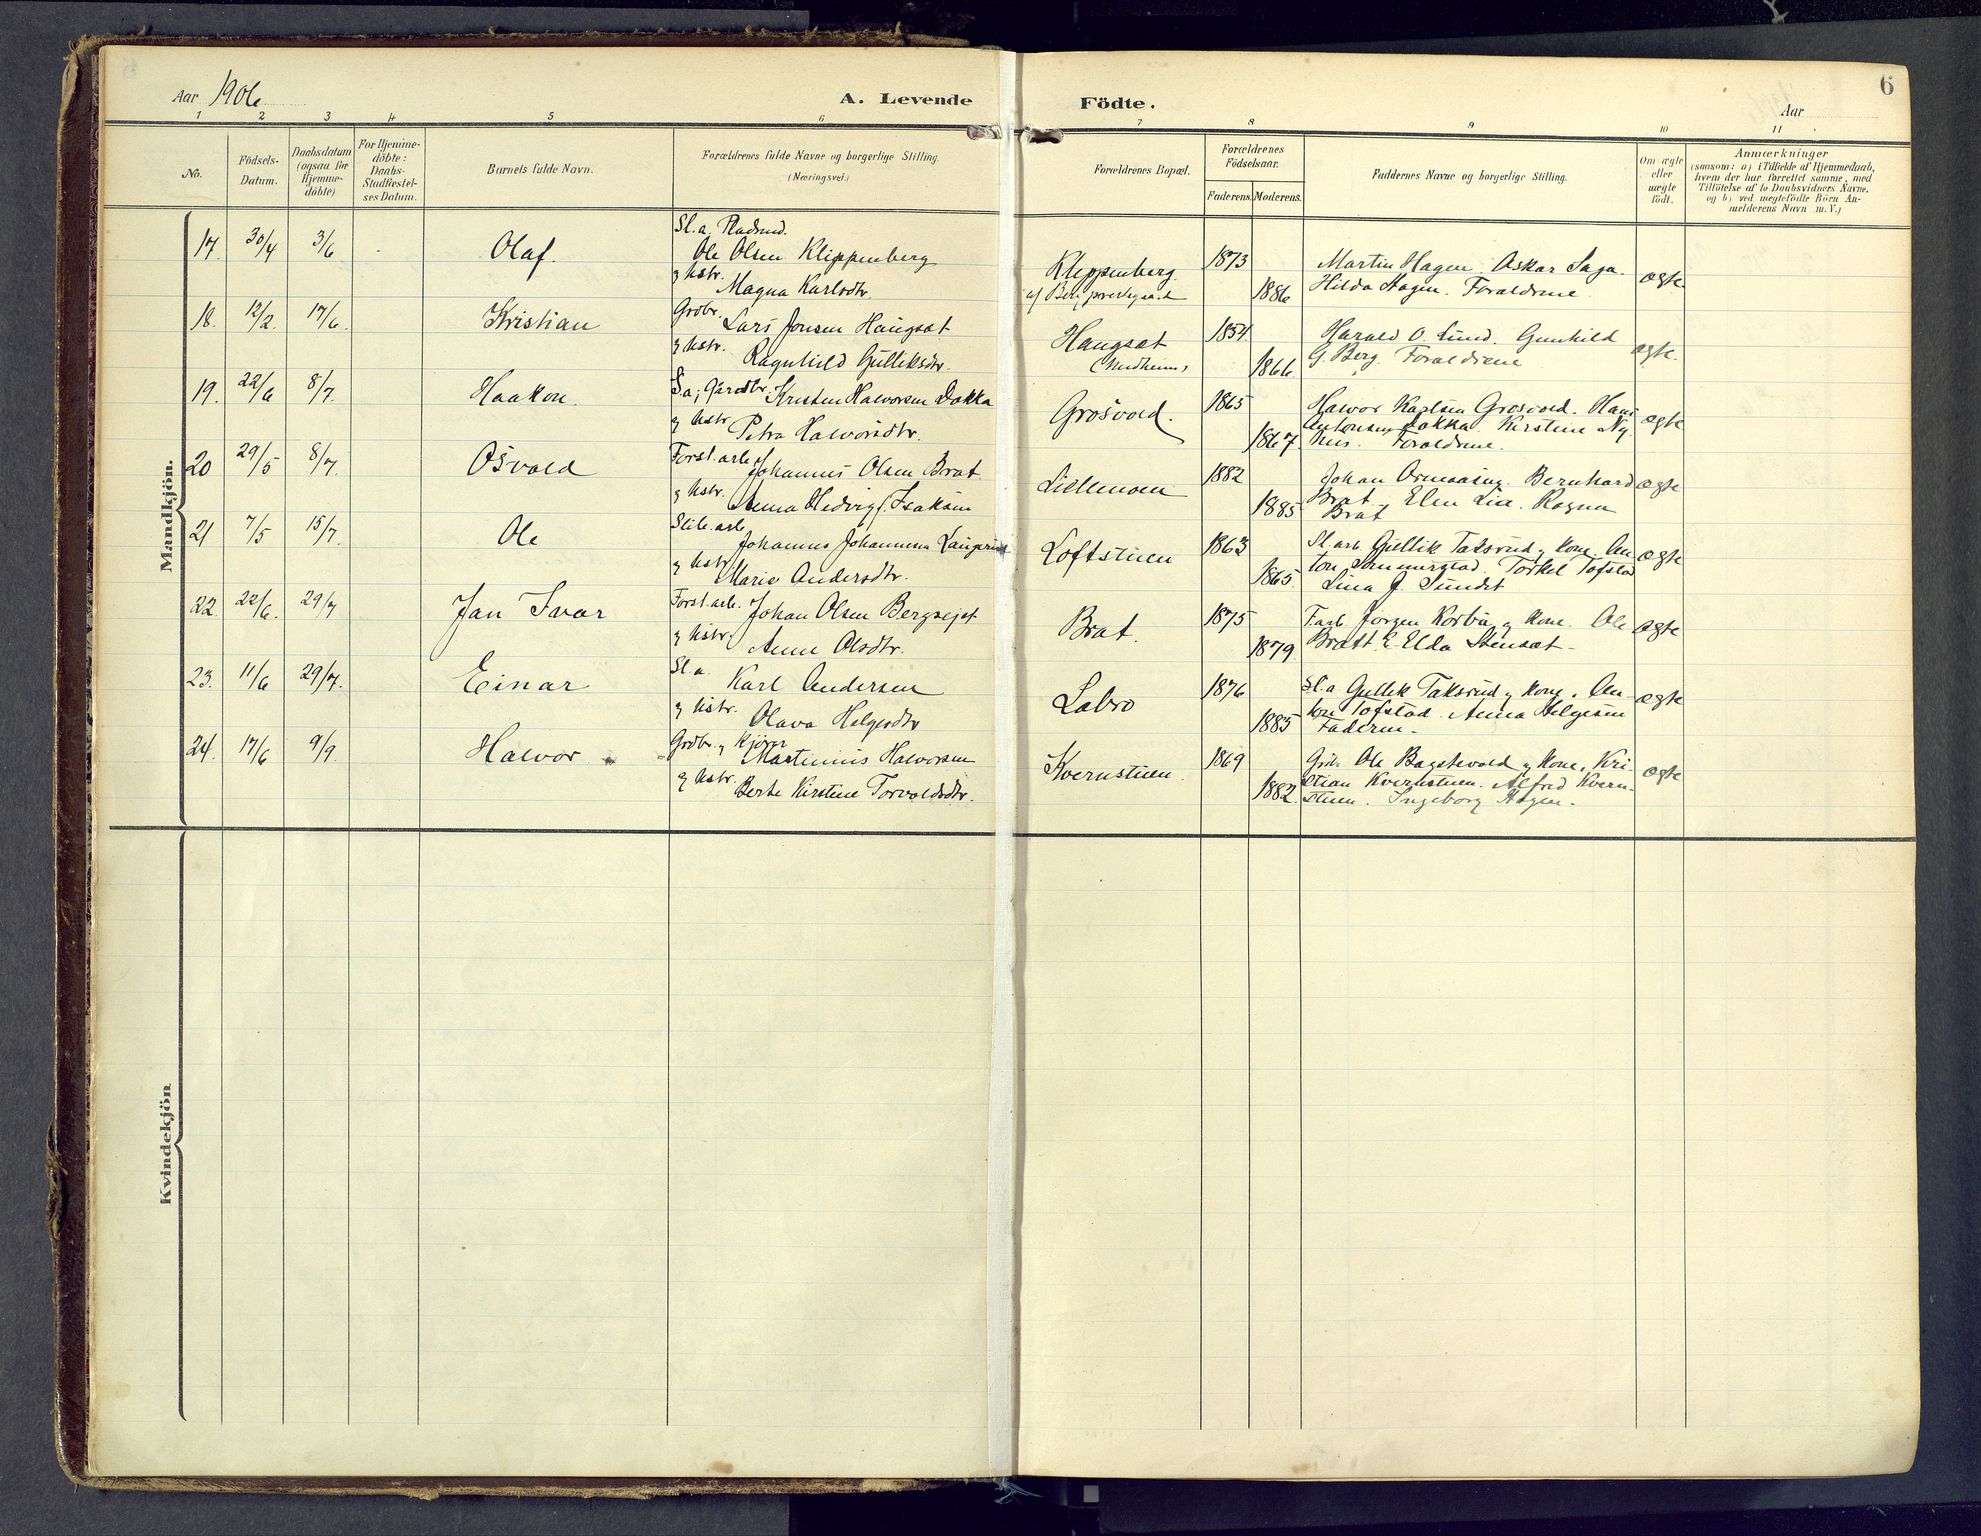 6
Aar 1906
A. Levende Födte.
Aar
1 2 3 4 5 6 7 8 9 10 11
No.
Födsels-
Datum.
Daabsdatum
(ogsaa for
Hjemme-
döbte)
For Hjemme-
döbte:
Daabs-
Stadfæstel-
ses Datum.
Barnets fulde Navn.
Forældrenes fulde Navne og borgerlige Stilling.
(Næringsvei.)
Forældrenes Bopæl.
Forældrenes
Födselsaar.
Faderens. Moderens.
Faddernes Navne og borgerlige Stilling.
Om ægte
eller
uægte
födt.
Anmærkninger
(saasom: a) i Tilfælde af Hjemmedaab,
hvem der har forrettet samme, med
Tilföielse af to Daabsvidners Navne,
og b) ved uægtefödte Börn An-
melderens Navn m. V.)
Mandkjön.
17. 30/4 3/6 Olaf.
Sl.a.
Ole Olsen Klippenberg
og hstr.
Magna Karlsdtr.
Klippenberg
1873
1886
Martin Hagen. Oskar Saga.
Hilda Hagen. Forældrene.
ægte.
18. 12/2. 17/6. Kristian
Grdbr.
Lars Jonsen Haugsæt
og hstr.
Ragnhild Gulliksdtr.
Haugsæt
(Medheim)
1854
1866
Harald O. Lund. Gunhild
G. Berg. Forældrene
ægte.
19. 22/6 8/7. Haakon.
Sa; Gårdbr. Kristen Halvorsen Dokka
og hstr.
Petra Halvorsdtr.
Grosvold.
1865
1867
Halvor Karlsen Grosvold. Hans
Antonsen Dokka. Kirstine Ny-
hus. Forældrene.
ægte
20 29/5 8/7. Osvald
Forst.arb.
Johannes Olsen Brat
og hstr.
Anna Hedvig f. Isaksen
Lillemoen
1882
1885
Johan Ormaasng. Bernhard
Brat. Elen Lia. Ragna
Brat
ægte
21 7/5 15/7. Ole
Slib.arb.
Johannes Johannesen
og hstr.
Marie Andersdtr.
Loftstuen
1863
1865.
Sl. arb. Gullik Taksrud og kone. An-
ton Sommerstad. Torkel Tofstad
Lina J. Sundet
ægte
22. 22/6. 29/7 Jan Ivar
Forst.arb. Johan Olsen Bergsejet
og hstr.
Anne Olsdtr.
Brat.
1875
1879.
F.arb. Jörgen Korbü og kone. Ole
Bratt. E. Elda Stensæt.
ægte
23. 11/6 29/7. Einar
Sl.a.
Karl Andersen
og hstr.
Olava Helgesdtr
Labro
1876
1885
Sl.a Gullik Taksrud og kone. An-
ton Tofstad. Anna Helgesen
Faderen.
ægte
24. 17/6 9/9. Halvor
Grdbr. og Kjörer
Martinius Halvorsen
og hstr.
Berte Kirstine Torvaldsdtr.
Kvernstuen.
1869
1882.
Grdb. Ole Bagstevold og kone. Kri-
stian Kvernstuen. Alfred Kvern-
stuen. Ingeborg Hagen.
ægte
Kvindekjön